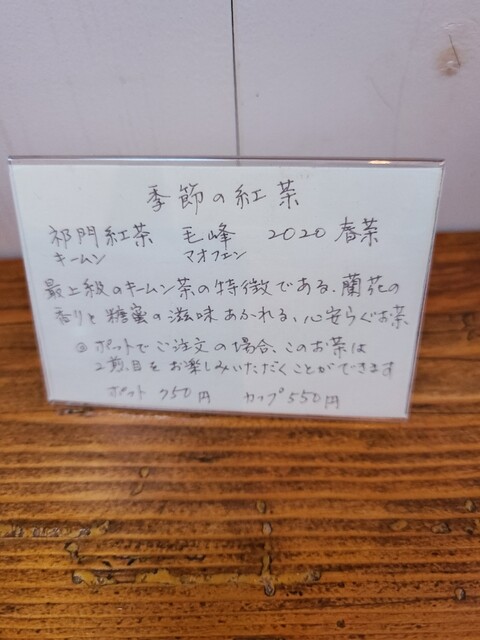 季節の紅茶
祁門紅茶 毛峰 2020 春茶
キームン マオフェン
最上級のキームン茶の特徴である、蘭花の
香りと糖蜜の滋味あふれる、心安らぐお茶
◎ポットでご注文の場合、このお茶は
2煎目をお楽しみいただくことができます
ポット 750円 カップ 550円